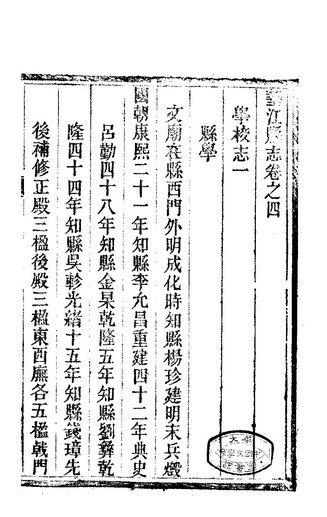 江縣志卷之四
學校志一
縣學
文廟在縣西門外明成化時知縣楊珍建明末兵燬
國朝康熙二十一年知縣李允昌重建四十二年典史
呂勤四十八年知縣金杲乾隆五年知縣劉彝乾
隆四十四年知縣吳軫光緒十五年知縣錢璋先
後補修正殿三楹後殿三楹東西廡各五楹戟門